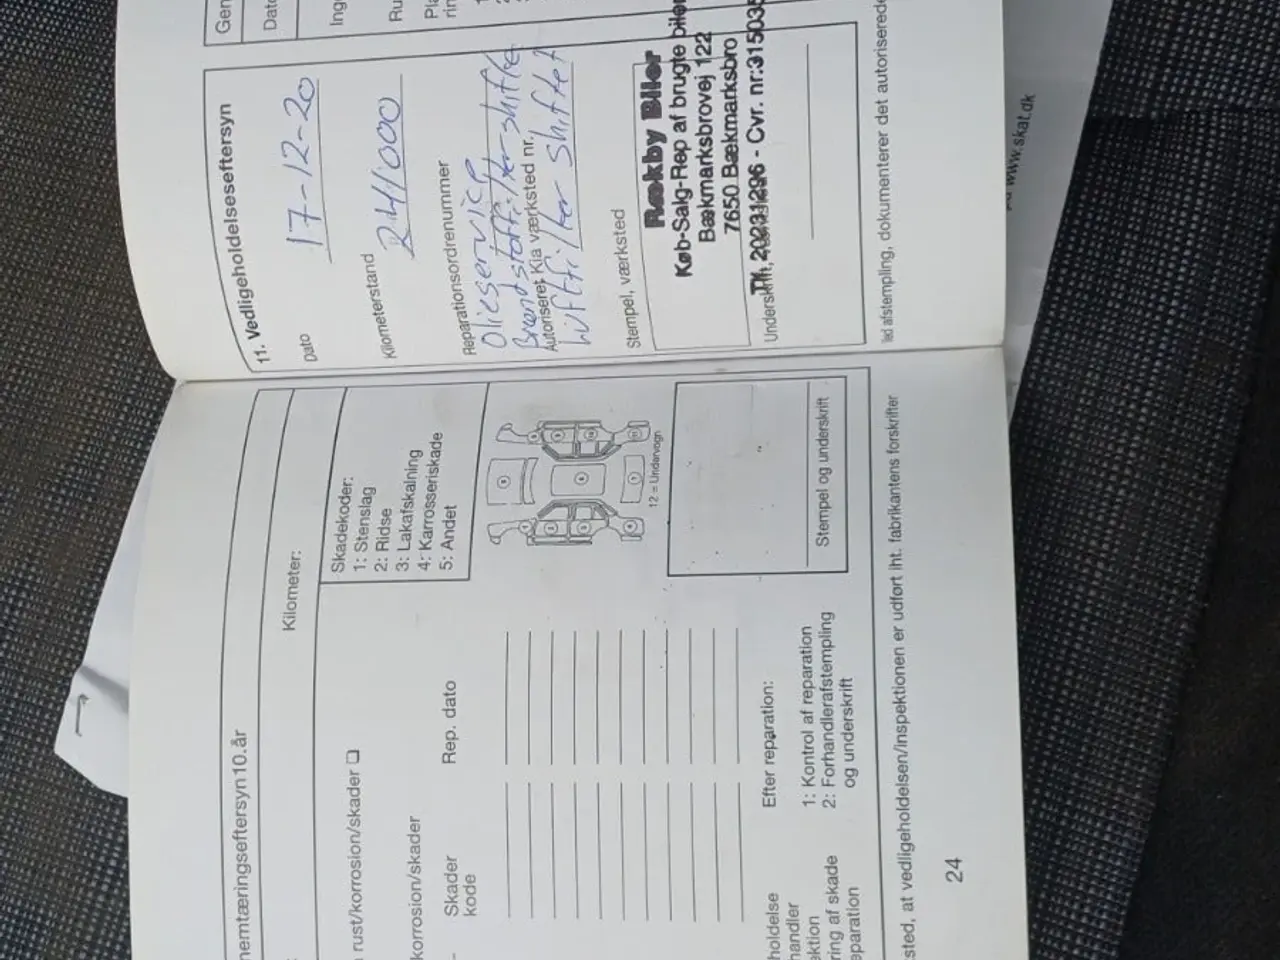 nemtæringseftersyn 10. år
Kilometer:
rust/korrosion/skader
korrosion/skader
Skadekoder:
1: Stenslag
2: Ridse
3: Lakafskalning
4: Karrosseriskade
5: Andet
Skader
kode
Rep. dato
12 = Undervogn
Efter reparation:
1: Kontrol af reparation
2: Forhandlerafstempling
og underskrift
Stempel og underskrift
holdelse
handler
ektion
ring af skade
eparation
sted, at vedligeholdelsen/inspektionen er udført iht. fabrikantens forskrifter
24
11. Vedligeholdelseseftersyn
Dato
17-12-20
Kilometerstand
214000
Reparationsordrenummer
Olieservice
Brændstoffilter shifte
Autoriseret Kia værksted nr.
Luftfilter shiftet
Stempel, værksted
Rækby Biler
Køb-Salg-Rep af brugte biler
Bækmarksbrovej 122
7650 Bækmarksbro
Tlf. 20231296 - Cvr. nr:315035
Underskrift,
ted afstempling, dokumenterer det autoriserede
Gen
Dato
Ing
Ru
Pla
rin
www.skat.dk